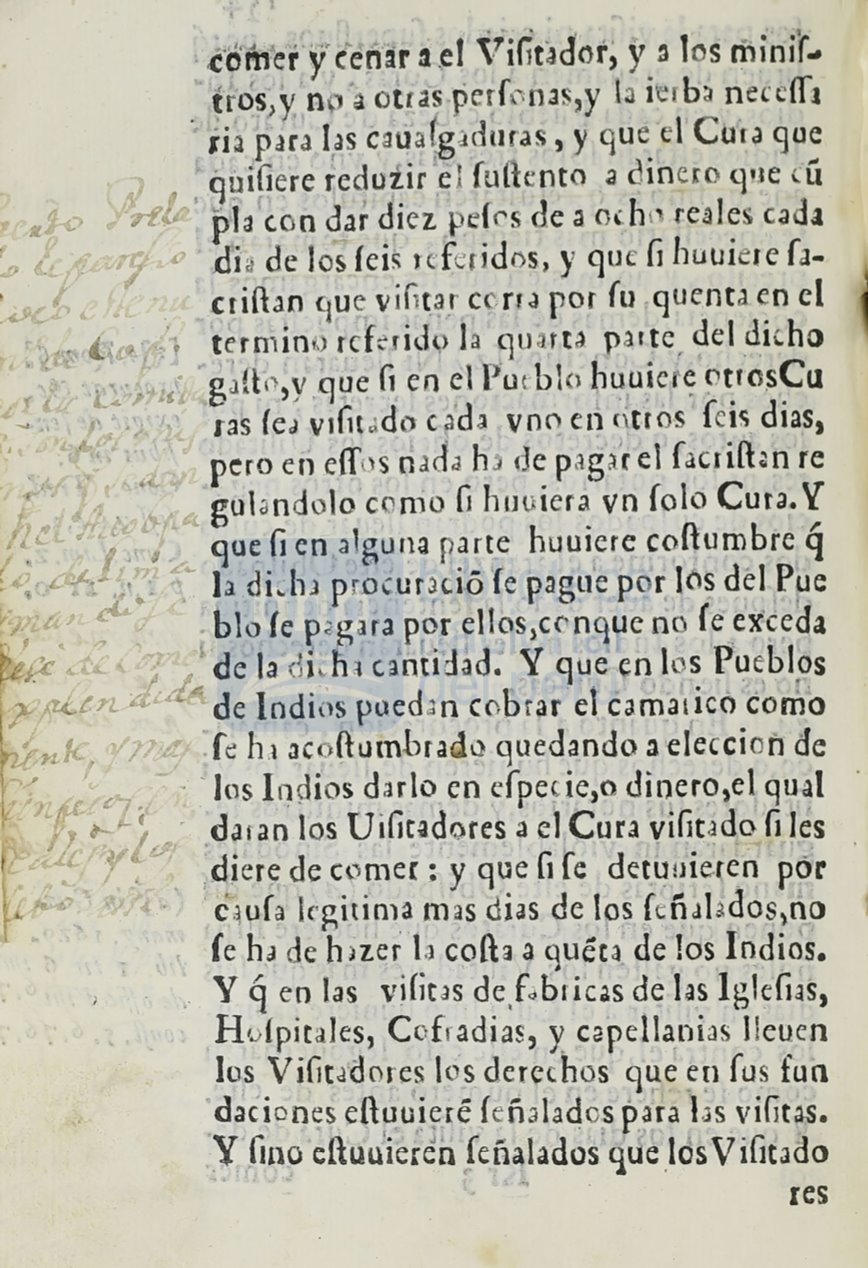 comer y cenar a el Viſitador, y a los miniſ-
tros, y no a otras perſonas, y la ierba neceſſa
ria para las caualgaduras, y que el Cura que
quiſiere reduzir el ſuſtento a dinero que cũ
pla con dar diez peſos de a ocho reales cada
dia de los ſeis referidos, y que ſi huuiere ſa-
criſtan que viſitar corra por ſu quenta en el
termino referido la quarta parte del dicho
gaſto, y que ſi en el Pueblo huuiere otros Cu
ras ſea viſitado cada vno en otros ſeis dias,
pero en eſſos nada ha de pagar el ſacriſtan re
gulandolo como ſi huuiera vn ſolo Cura. Y
que ſi en alguna parte huuiere coſtumbre q́
la dicha procuraciõ ſe pague por los del Pue
blo ſe pagara por ellos, conque no ſe exceda
de la dicha cantidad. Y que en los Pueblos
de Indios puedan cobrar el camarico como
ſe ha acoſtumbrado quedando a eleccion de
los Indios darlo en eſpecie, o dinero, el qual
daran los Uiſitadores a el Cura viſitado ſi les
diere de comer : y que ſi ſe detuuieren por
cauſa legitima mas dias de los ſeñalados, no
ſe ha de hazer la coſta a quéta de los Indios.
Y q́ en las viſitas de fabricas de las Igleſias,
Hoſpitales, Cofradias, y capellanias lleuen
los Viſitadores los derechos que en ſus fun
daciones eſtuuieré ſeñalados para las viſitas.
Y ſino eſtuuieren ſeñalados que los Viſitado
res
Prela
de Lima
de Come
explendida
mente, y mas